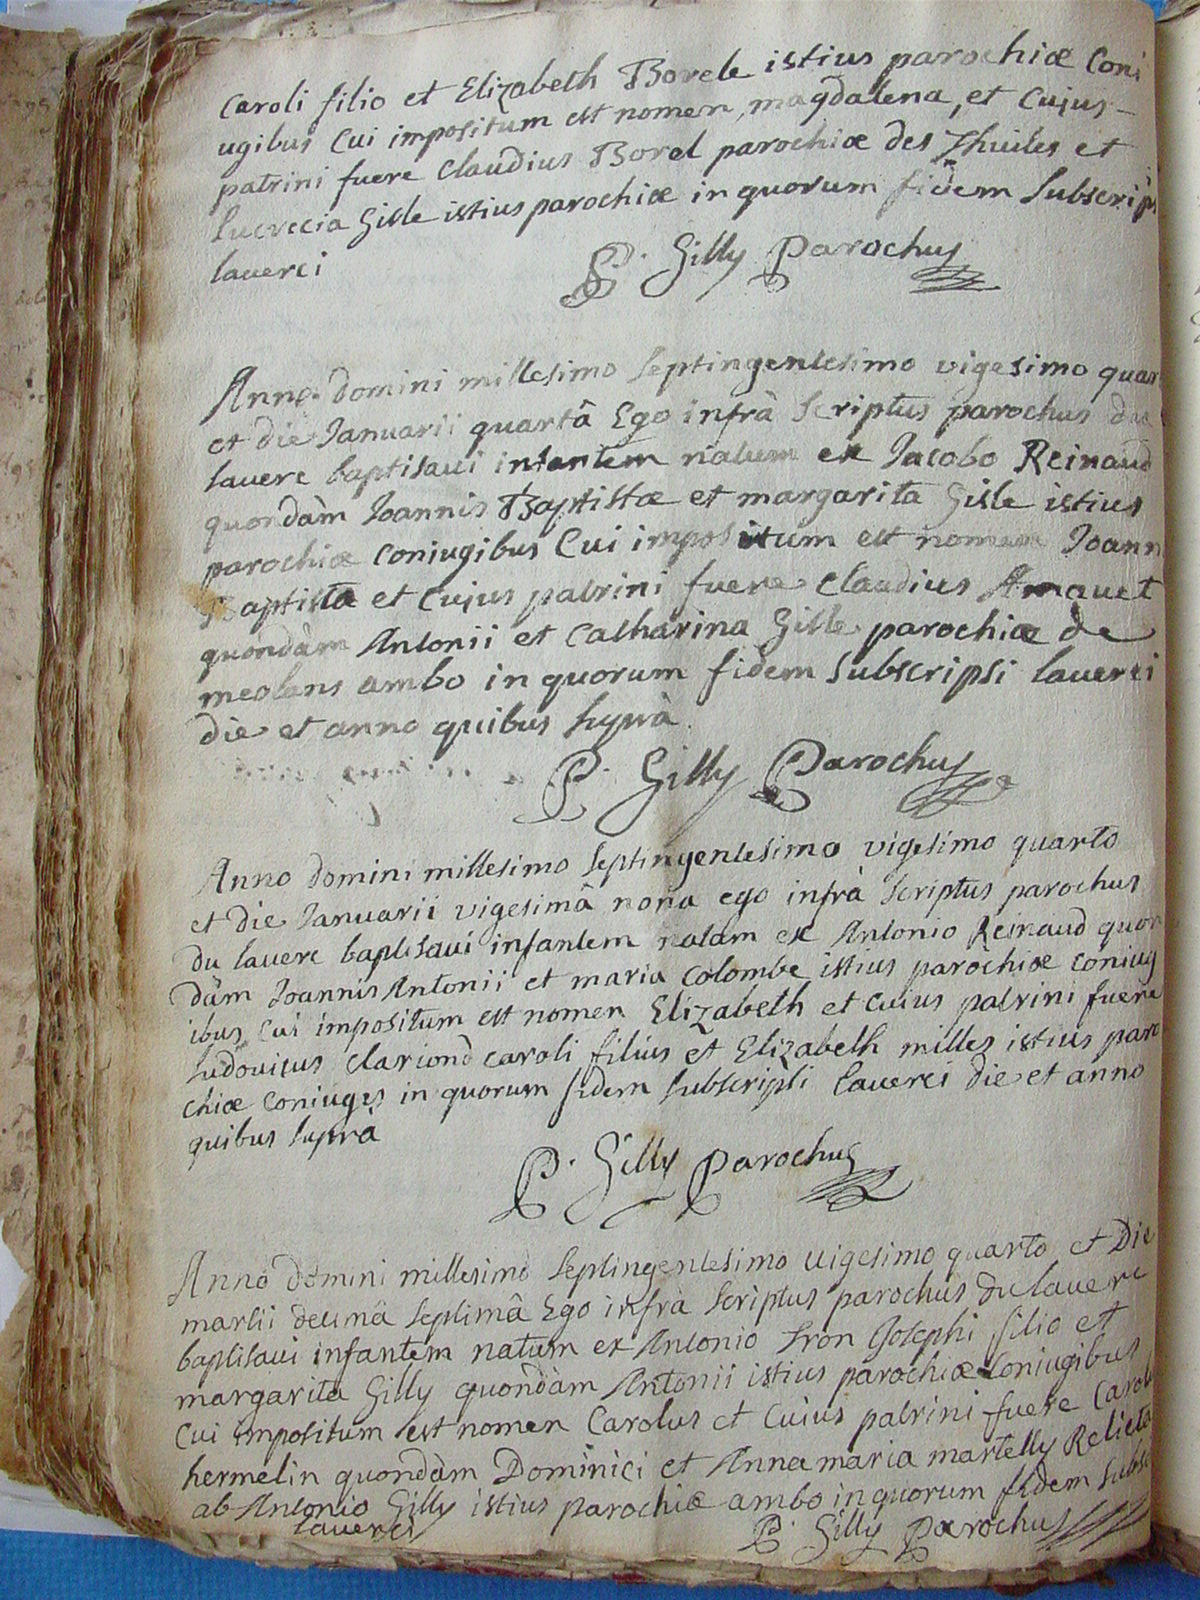 Caroli filio et Elizabeth Borele istius parochiæ Coni
ugibus Cui impositum est nomen, magdalena, et Cujus
patrini fuere Claudius Borel parochiæ des Thuiles et
lucrecia Gille istius parochiæ in quorum fidem Subscripsi
laverci
P. Gilly Parochus
Anno domini millesimo septingentesimo vigesimo quar
et die Januarii quartâ Ego infrà Scriptus parochus du
laverc baptisavi infantem natum ex Jacobo Reinaud
quondàm Joannis Baptistæ et margarita Gille istius
parochiæ coniugibus Cui impositum est nomen Joann
Baptista et Cujus patrini fuere Claudius Arnauet
quondàm Antonii et Catharina Gille parochiæ de
meolans ambo in quorum fidem Subscripsi laverci
die et anno quibus suprà
P. Gilly Parochus
Anno domini millesimo septingentesimo vigesimo quarto
et die Januarii vigesimâ nona ego infrà Scriptus parochus
du laverc baptisavi infantem natam ex Antonio Reinaud quon
dàm Joannis Antonii et maria Colombe istius parochiæ coniug
ibus Cui impositum est nomen Elizabeth et Cuius patrini fuere
ludovicus Clariond Caroli filius et Elizabeth milles istius paro
chiæ Coniuges in quorum fidem Subscripsi laverci die et anno
quibus Suprà
P. Gilly Parochus
Anno domini millesimo Septingentesimo vigesimo quarto et Die
martii decimâ Septimâ Ego infrà Scriptus parochus du laverc
baptisavi infantem natum ex Antonio Tron Josephi filio et
margarita Gilly quondàm Antonii istius parochiæ Coniugibus
Cui impositum est nomen Carolus et Cuius patrini fuere Carolu
hermelin quondàm Dominici et Anna maria martelly Relicta
ab Antonio Gilly istius parochiæ ambo in quorum fidem Subsc
laverci P. Gilly Parochus